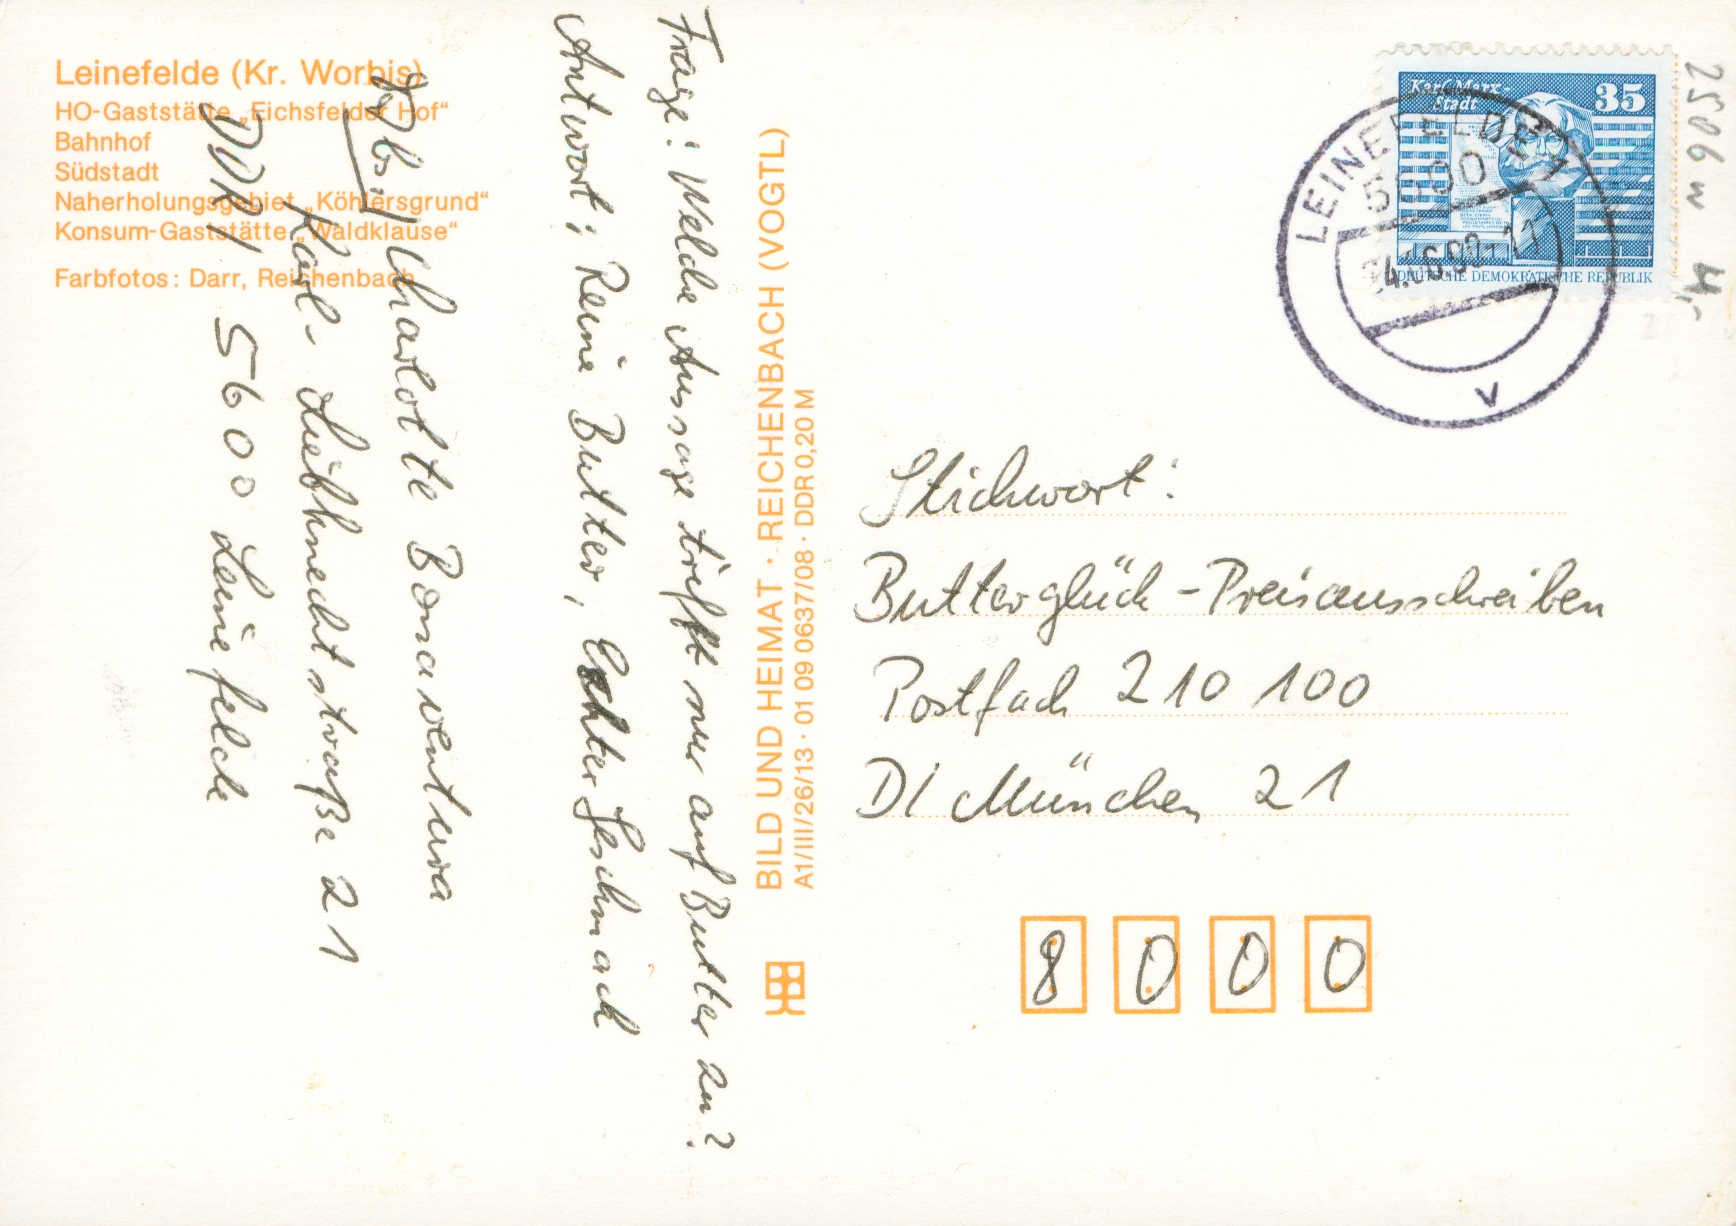 Leinefelde (Kr. Worbis)
HO-Gaststätte „Eichsfelder Hof“
Bahnhof
Südstadt
Naherholungsgebiet „Köhlersgrund“
Konsum-Gaststätte „Waldklause“
Farbfotos: Darr, Reichenbach
Frage: Welche Aussage trifft nur auf Butter zu?
Antwort: Reine Butter, Echter Geschmack
Abs.: Charlotte Bonaventura
Karl-Liebknechtstraße 21
DDR / 5600 Leinefelde
BILD UND HEIMAT · REICHENBACH (VOGTL)
A1/III/26/13 · 01 09 0637/08 · DDR 0,20 M
Karl-Marx-
Stadt
35
DEUTSCHE DEMOKRATISCHE REPUBLIK
LEINEFELDE 1
5600
v
2506 u
4,-
Stichwort:
Butterglück-Preisausschreiben
Postfach 210 100
D/ München 21
8 0 0 0